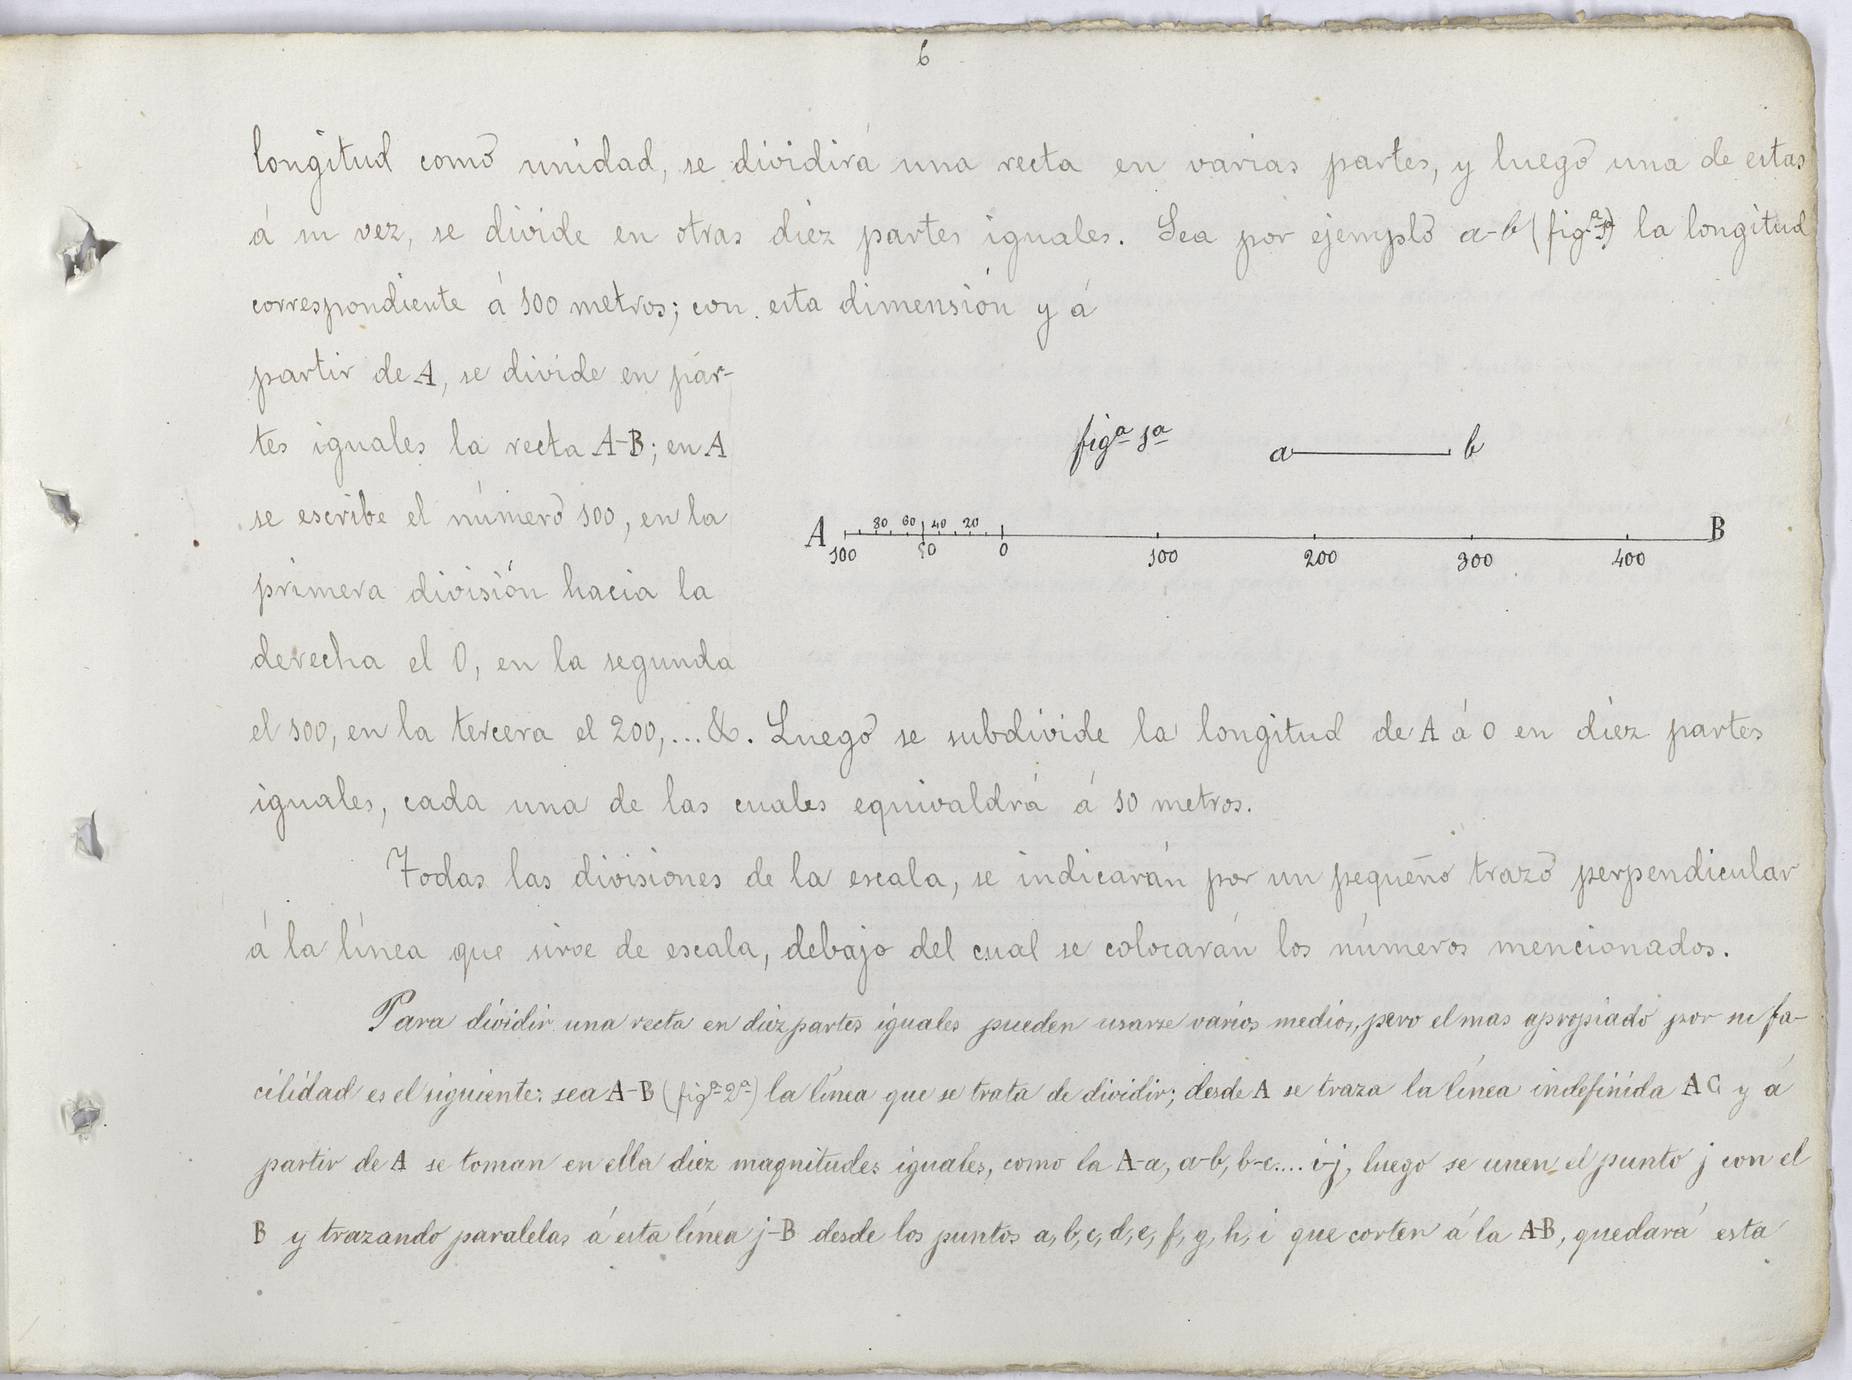 6
longitud como unidad, se dividirá una recta en varias partes, y luego una de estas
á su vez, se divide en otras diez partes iguales. Sea por ejemplo a-b (figª 1ª) la longitud
correspondiente á 100 metros; con esta dimensión y á
partir de A, se divide en par-
tes iguales la recta A-B; en A
se escribe el número 100, en la
primera división hacia la
derecha el 0, en la segunda
figª 1ª a b
A 80 60 40 20 B
100 50 0 100 200 300 400
el 100, en la tercera el 200,... &. Luego se subdivide la longitud de A á 0 en diez partes
iguales, cada una de las cuales equivaldrá á 10 metros.
Todas las divisiones de la escala, se indicarán por un pequeño trazo perpendicular
á la línea que sirve de escala, debajo del cual se colocarán los números mencionados.
Para dividir una recta en diez partes iguales pueden usarse varios medios, pero el mas apropiado por su fa-
cilidad es el siguiente: sea A-B (figª 2ª) la línea que se trata de dividir; desde A se traza la línea indefinida AC y á
partir de A se toman en ella diez magnitudes iguales, como la A-a, a-b, b-c.... i-j, luego se unen el punto j con el
B y trazando paralelas á esta línea j-B desde los puntos a, b, c, d, e, f, g, h, i que corten á la A-B, quedará esta